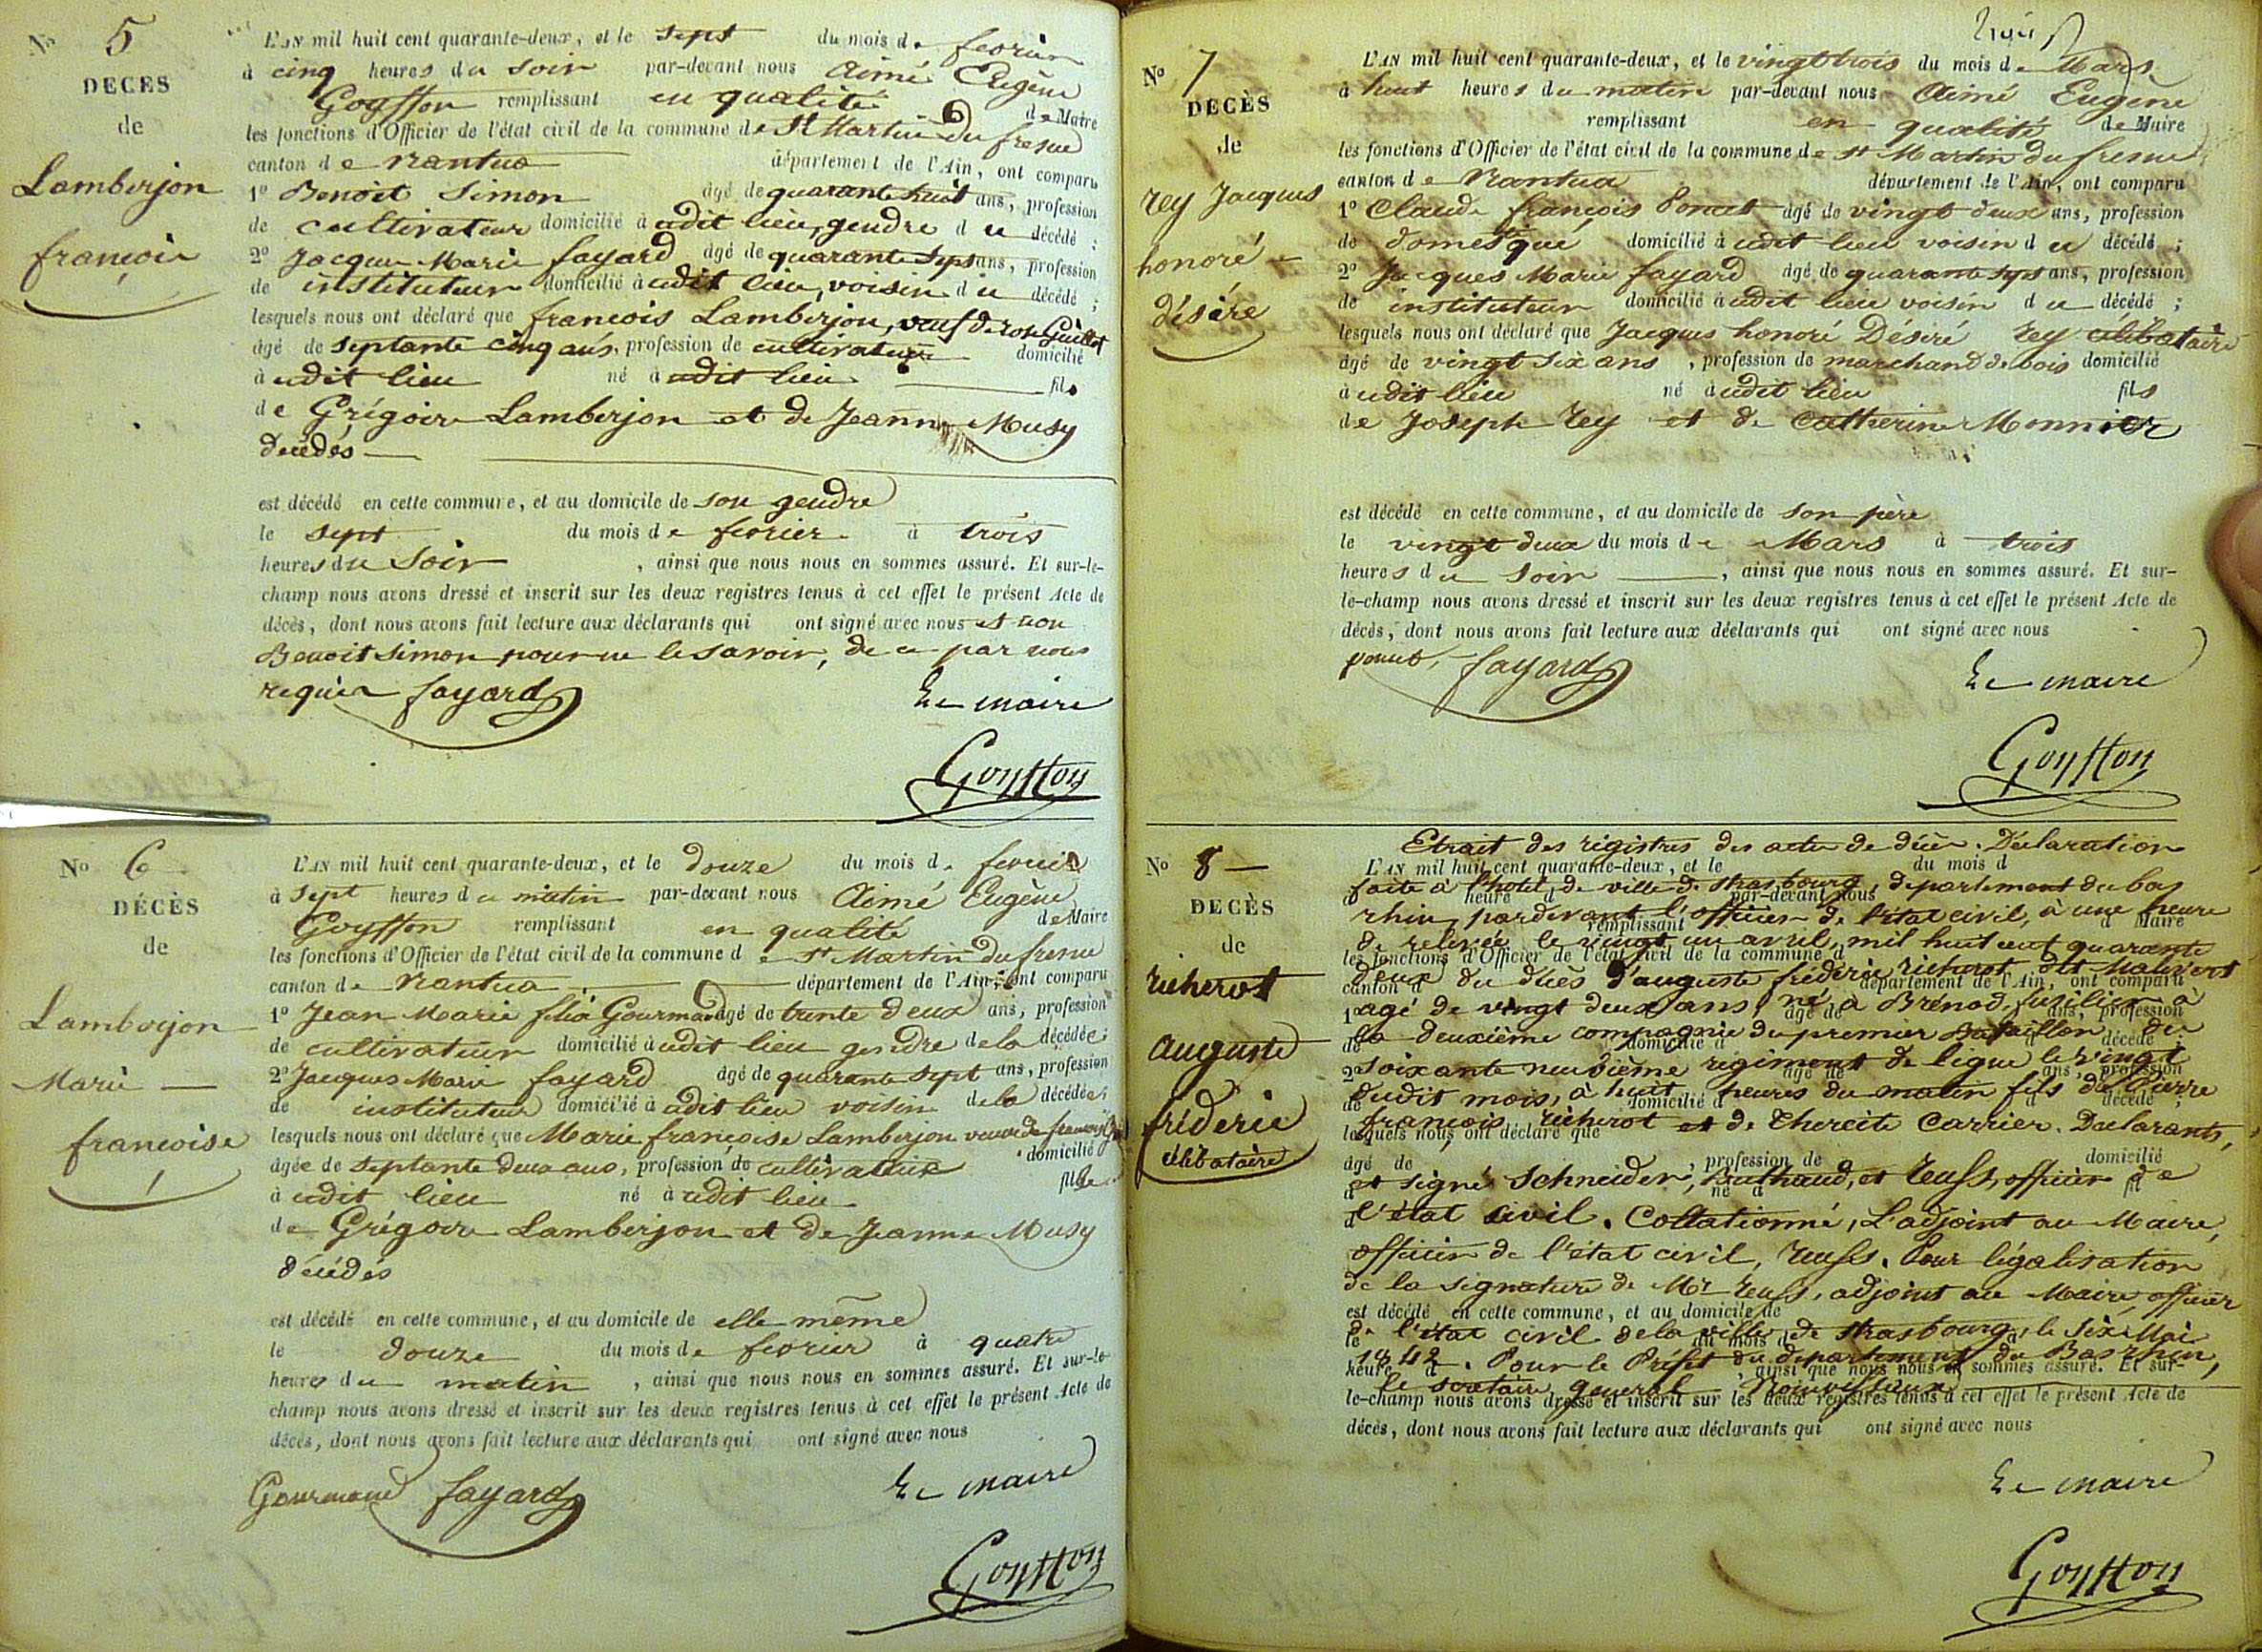 No 5
DECES
de
Lamberjon
françois
L'AN mil huit cent quarante-deux, et le sept du mois de fevrier
à cinq heures du soir par-devant nous Aimé Eugène
Goyffon remplissant en qualité de Maire
les fonctions d'Officier de l'état civil de la commune de St Martin Du fresne
canton de Nantua département de l'Ain, ont comparu
1o Benoit Simon âgé de quarante huit ans, profession
de cultivateur domicilié à udit lieu, gendre du décédé ;
2o Jacques Marie fayard âgé de quarante sept ans, profession
de instituteur domicilié à udit lieu, voisin du décédé ;
lesquels nous ont déclaré que françois Lamberjon, veuf de rose Guillot
âgé de septante cinq ans, profession de cultivateur domicilié
à udit lieu né à udit lieu fils
de Grégoire Lamberjon et de Jeanne Musy
décédés
est décédé en cette commune, et au domicile de son gendre
le sept du mois de fevrier à trois
heures du Soir , ainsi que nous nous en sommes assuré. Et sur-le-
champ nous avons dressé et inscrit sur les deux registres tenus à cet effet le présent Acte de
décès, dont nous avons fait lecture aux déclarants qui ont signé avec nous et non
Benoit Simon pour ne le savoir, de ce par nous
requis fayard Le maire
Goyffon
No 6
DÉCÈS
de
Lamberjon
Marie
françoise
L'AN mil huit cent quarante-deux, et le douze du mois de fevrier
à sept heures du matin par-devant nous Aimé Eugène
Goyffon remplissant en qualité de Maire
les fonctions d'Officier de l'état civil de la commune de St Martin Du fresne
canton de Nantua département de l'Ain, ont comparu
1o Jean Marie félix Gourmand âgé de trente deux ans, profession
de cultivateur domicilié à udit lieu gendre de la décédée ;
2o Jacques Marie fayard âgé de quarante sept ans, profession
de instituteur domicilié à udit lieu voisin de la décédée ;
lesquels nous ont déclaré que Marie françoise Lamberjon veuve de françois
âgée de septante deux ans, profession de cultivatrice domicilié
à udit lieu né à udit lieu fille
de Grégoire Lamberjon et de Jeanne Musy
décédés
est décédé en cette commune, et au domicile de elle même
le douze du mois de fevrier à quatre
heures du matin , ainsi que nous nous en sommes assuré. Et sur-le-
champ nous avons dressé et inscrit sur les deux registres tenus à cet effet le présent Acte de
décès, dont nous avons fait lecture aux déclarants qui ont signé avec nous
Gourmand fayard Le maire
Goyffon
No 7
DECÈS
de
rey Jacques
honoré
désiré
L'AN mil huit cent quarante-deux, et le vingt trois du mois de Mars
à huit heures du matin par-devant nous Aimé Eugene
remplissant en qualité de Maire
les fonctions d'Officier de l'état civil de la commune de St Martin du fresne
canton de Nantua département de l'Ain, ont comparu
1o Claude françois Poncet âgé de vingt deux ans, profession
de domestique domicilié à udit lieu voisin du décédé ;
2o Jacques Marie fayard âgé de quarante sept ans, profession
de instituteur domicilié à udit lieu voisin du décédé ;
lesquels nous ont déclaré que Jacques honoré Désiré rey célibataire
âgé de vingt six ans , profession de marchand de bois domicilié
à udit lieu né à udit lieu fils
de Joseph rey et de Catherine Monnier
est décédé en cette commune, et au domicile de son père
le vingt deux du mois de Mars à trois
heures du soir , ainsi que nous nous en sommes assuré. Et sur-
le-champ nous avons dressé et inscrit sur les deux registres tenus à cet effet le présent Acte de
décès, dont nous avons fait lecture aux déclarants qui ont signé avec nous
poncet, fayard Le maire
Goyffon
No 8
DECÈS
de
richerot
auguste
fréderic
célibataire
Etrait des régistres des actes de décès. Déclaration
L'AN mil huit cent quarante-deux, et le du mois d
faite à l'hotel de ville de strasbourg, département du bas
heure d par-devant nous
rhin, pardevant l'officier de l'état civil, à une heure
remplissant d Maire
de relevée le vingt un avril, mil huit cent quarante
les fonctions d'Officier de l'état civil de la commune d
deux du décès d'auguste fréderic richerot dit Mauvert
canton d département de l'Ain, ont comparu
agé de vingt deux ans, né à Brénod, fusilier à
1o âgé de ans, profession
la deuxième compagnie du premier Bataillon du
de domicilié à d décédé ;
soixante neuvième regiment de ligne le vingt
2o âgé de ans, profession
dudit mois, à huit heures du matin fils de Pierre
de domicilié à d décédé ;
françois richerot et de Thereite Carrier. Declarants,
lesquels nous ont déclaré que
âgé de , profession de domicilié
et signé Schneider, Bathaud, et reuss, officier de
à né à fil
l'état civil. Collationné, L'adjoint au Maire,
d
officier de l'état civil, reuss. Pour légalisation
de la signature de Mr reuss, adjoint au Maire, officier
est décédé en cette commune, et au domicile de
de l'état civil de la ville de strasbourg, le six Mai
le du mois d à
1842. Pour le Préfet du département du Bas rhin,
heure d , ainsi que nous nous en sommes assuré. Et sur-
le secretaire general
le-champ nous avons dressé et inscrit sur les deux registres tenus à cet effet le présent Acte de
décès, dont nous avons fait lecture aux déclarants qui ont signé avec nous
Le maire
Goyffon